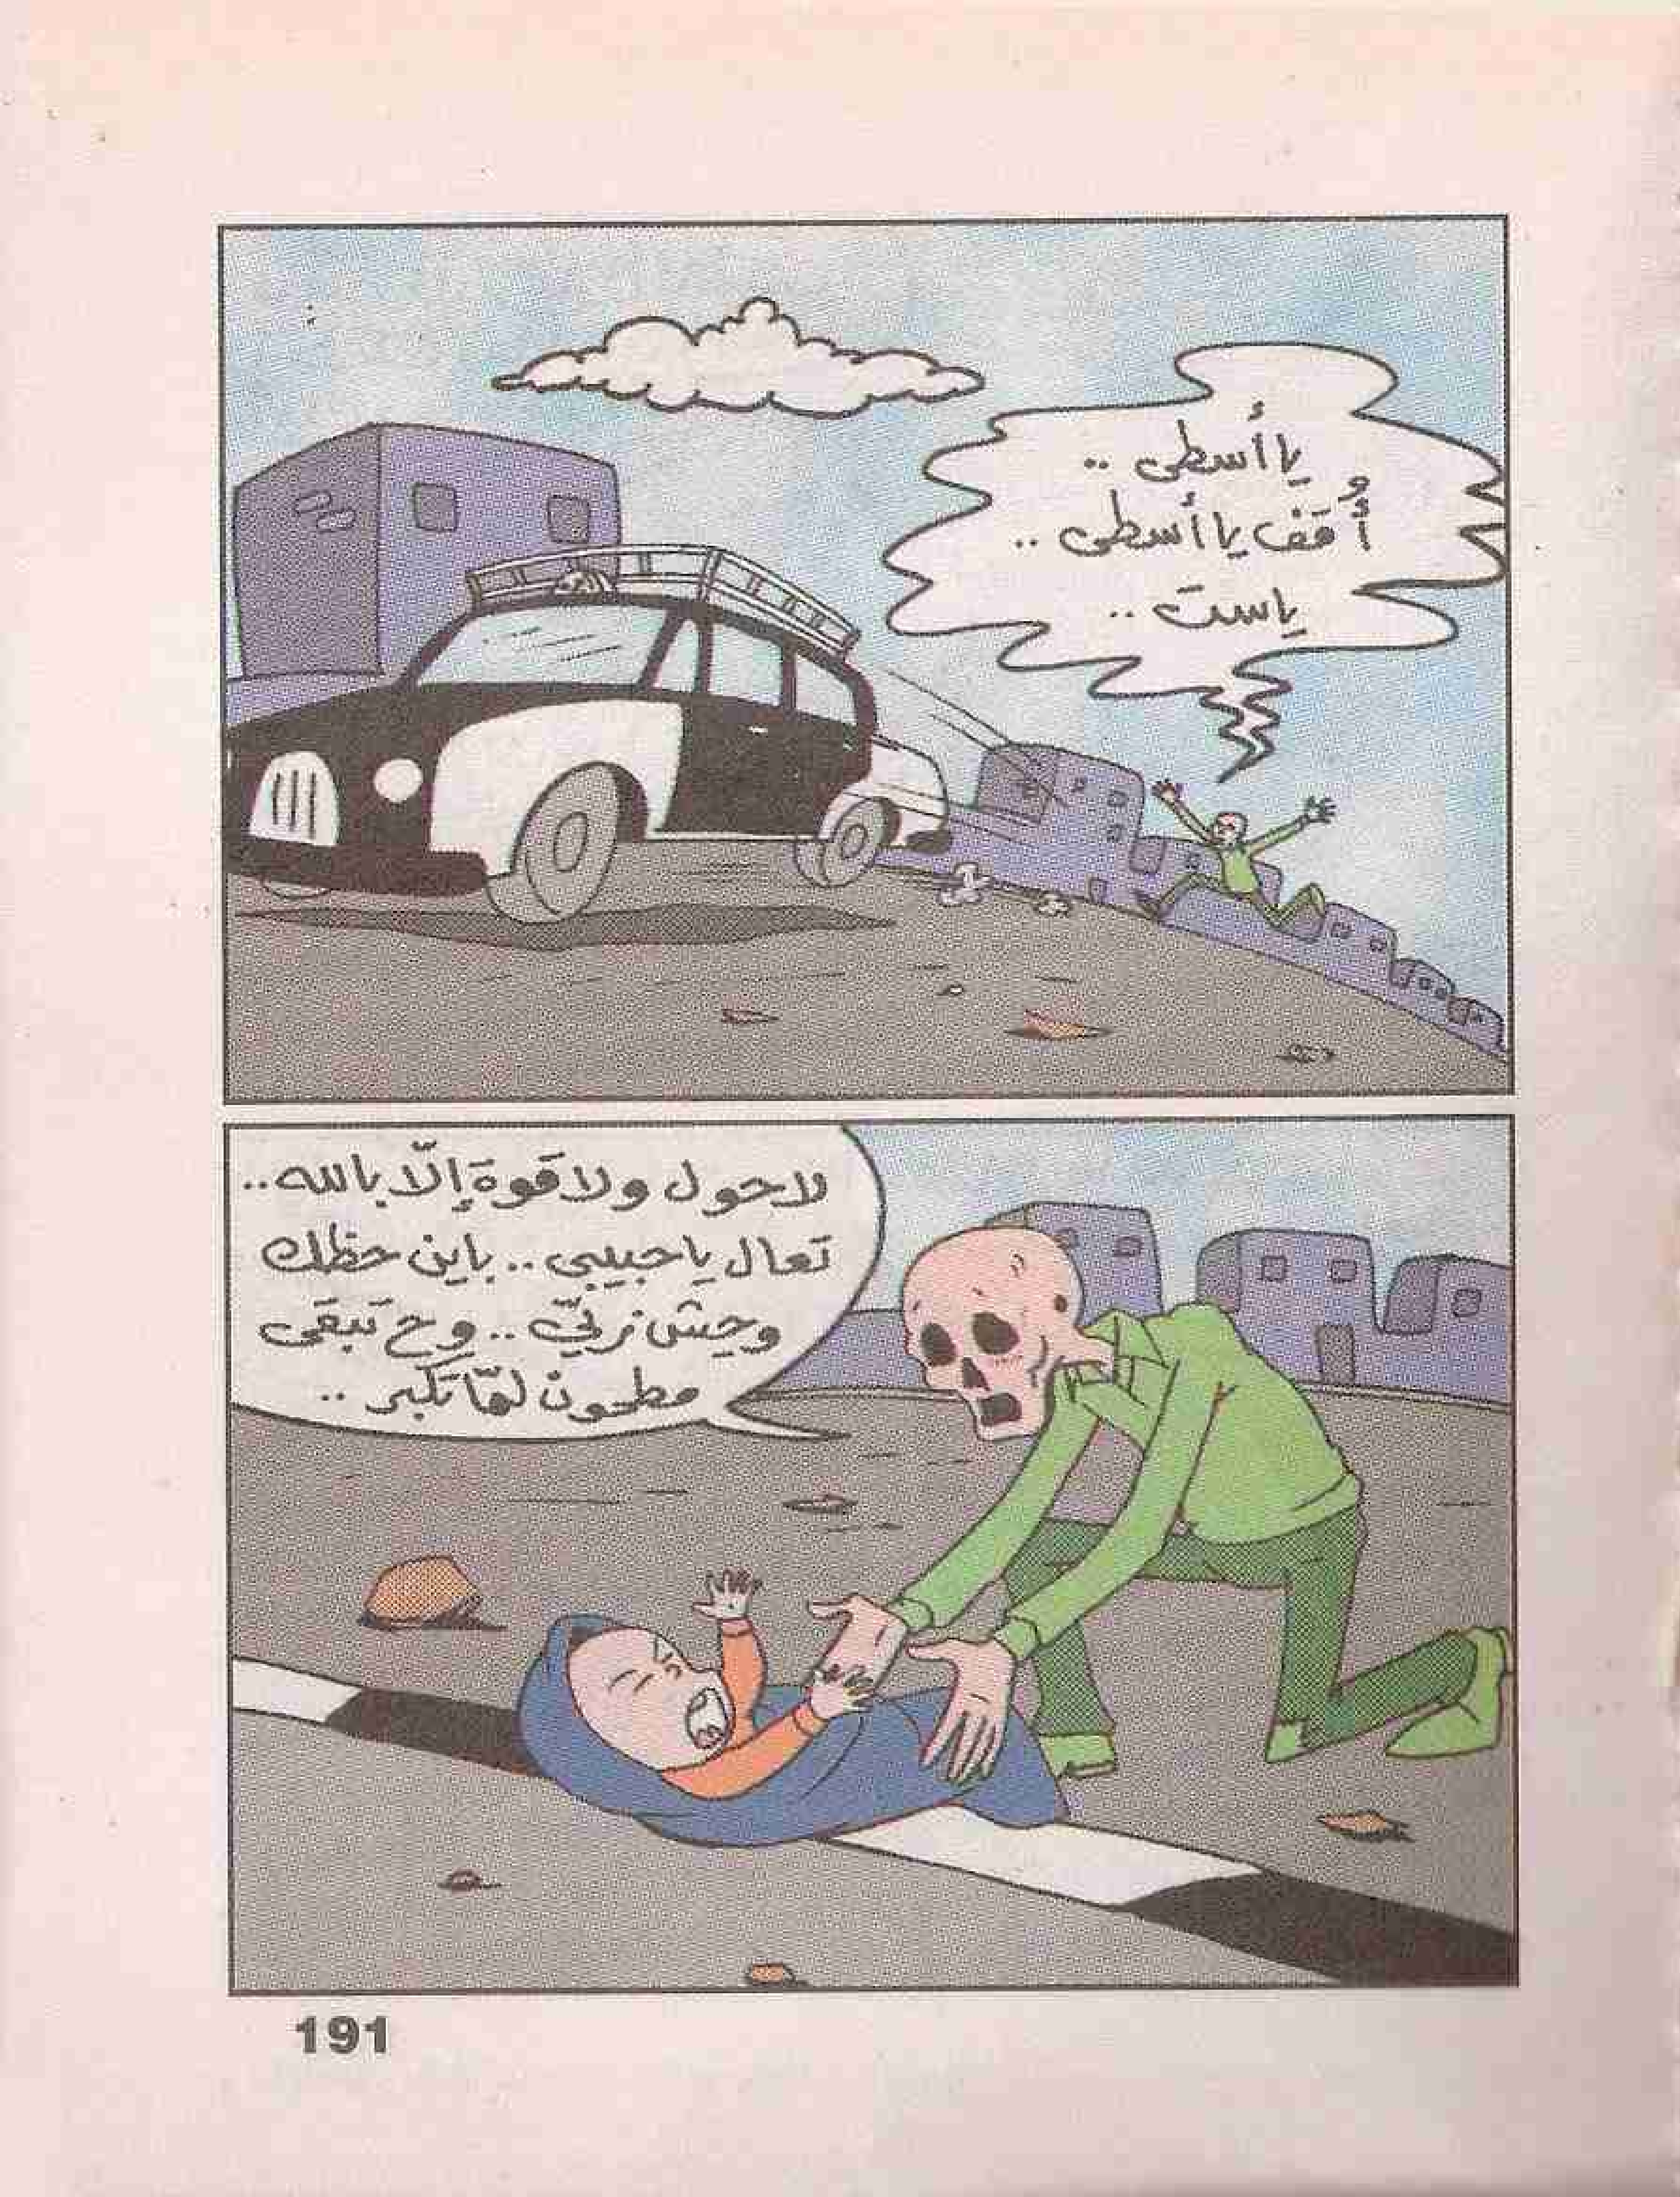 يا أسطى ..
أُقَفْ يا أسطى ..
ياست ..
لاحول ولا قوة إلّا بالله..
تعال يا حبيبي.. باين حظك
وحِش زيّي.. وح تبقَى
مطحون لمّا تكبر ..
191